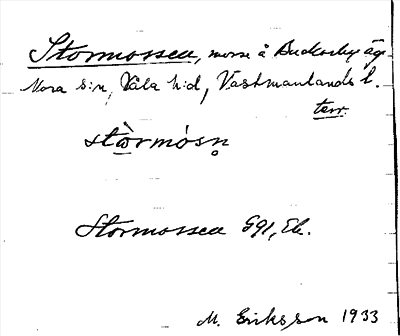 Stormossen, mosse å Buckarby äg.
Nora s:n, Våla h:d, Västmanlands l.
terr.
stὼrmósn̥
Stormossen G91, Ek.
M. Eriksson 1933